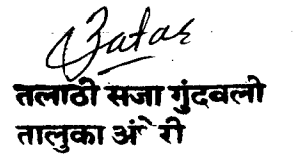 तलाठी सजा गुंदवली
तालुका अंेरी